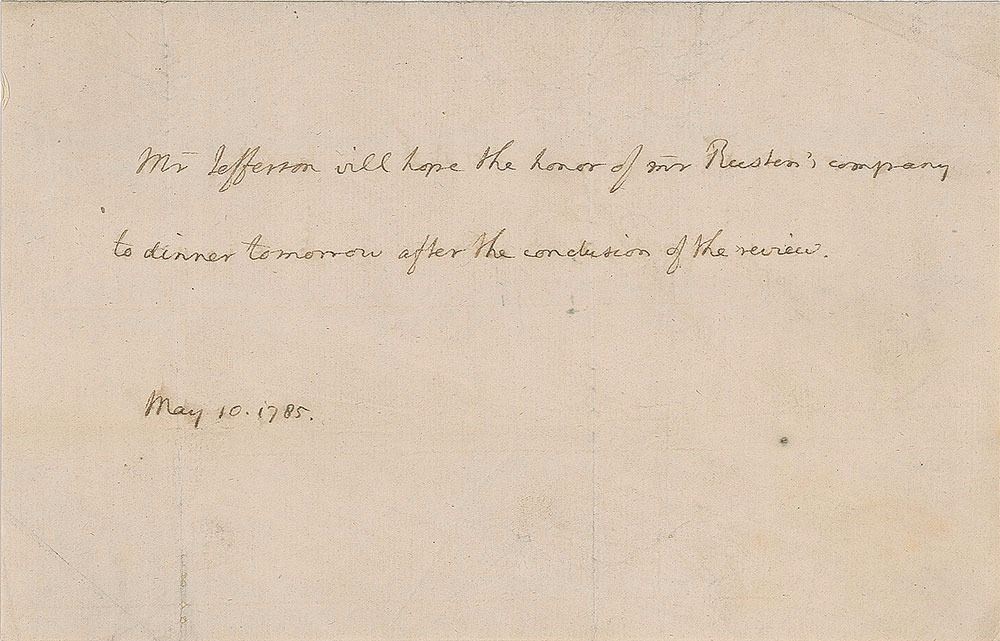 Mr Jefferson will hope the honor of mr Ruston's company
to dinner tomorrow after the conclusion of the review.
May 10. 1785.